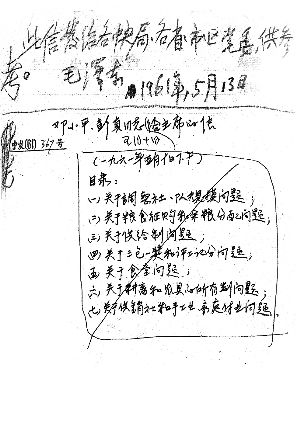 此信发给各中央局，各省、市、区党委，供参
考。
毛泽东
1961年，5月13日
邓小平、彭真同志给主席的信
(一九六一年五月十日下午)
目录：
(一)关于調整社、队规模问题；
(二)关于粮食征购和余粮分配问题；
(三)关于供给制问题；
(四)关于三包一奖和评工记分问题；
(五)关于食堂问题；
(六)关于耕畜和农具的所有制问题；
(七)关于供銷社和手工业、家庭付业问题。